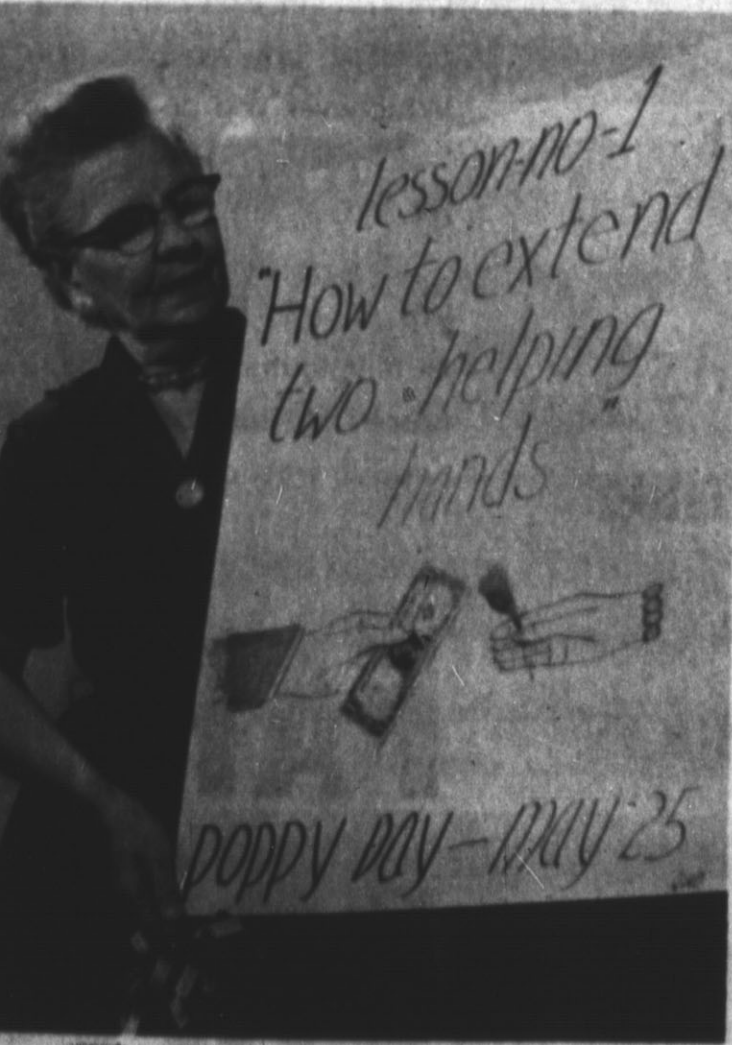 lesson-no-1
"How to extend
two helping
hands"
poppy Day - may 25